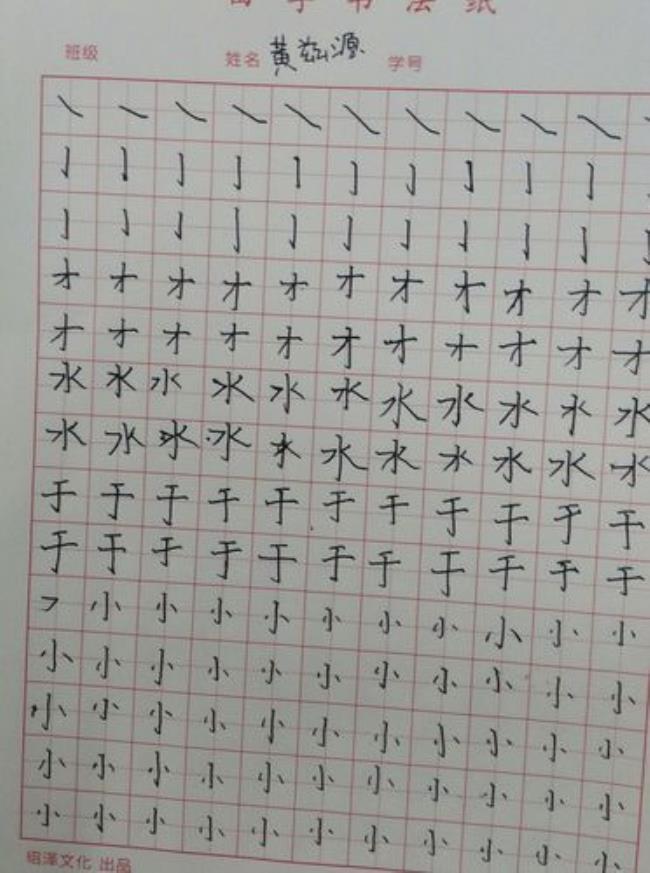 田字书法纸
班级 姓名 黄兹源 学号
㇏ ㇏ ㇏ ㇏ ㇏ ㇏ ㇏ ㇏ ㇏ ㇏
亅 亅 亅 亅 亅 亅 亅 亅 亅 亅
亅 亅 亅 亅 亅 亅 亅 亅 亅 亅
才 才 才 才 才 才 才 才 才 才 才
才 才 才 才 才 才 才 才 才 才 才
水 水 水 水 水 水 水 水 水 水 水
水 水 水 水 水 水 水 水 水 水 水
于 于 于 于 于 于 于 于 于 于 于
于 于 于 于 于 于 于 于 于 于 于
㇇ 小 小 小 小 小 小 小 小 小 小
小 小 小 小 小 小 小 小 小 小 小
小 小 小 小 小 小 小 小 小 小 小
小 小 小 小 小 小 小 小 小 小 小
小 小 小 小 小 小 小 小 小 小 小
绍泽文化 出品